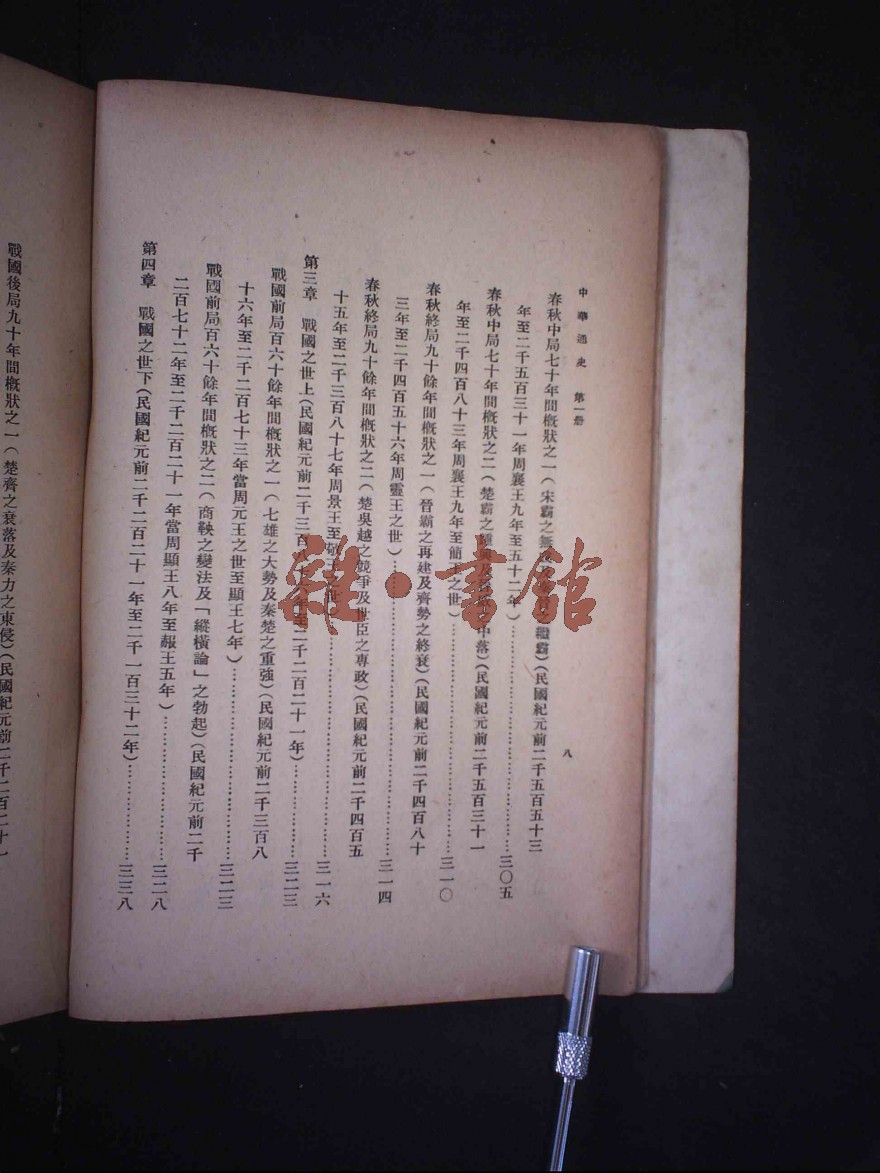 中華通史　第一册
八
春秋中局七十年間概狀之一（宋霸之無成及晉文之繼霸）（民國紀元前二千五百五十三
年至二千五百三十一年周襄王九年至五十二年）……三〇五
春秋中局七十年間概狀之二（楚霸之中落）（民國紀元前二千五百三十一
年至二千四百八十三年周襄王九年至簡王之世）……三一〇
春秋終局九十餘年間概狀之一（晉霸之再建及齊勢之終衰）（民國紀元前二千四百八十
三年至二千四百五十六年周靈王之世）……三一四
春秋終局九十餘年間概狀之二（楚吳越之競爭及世臣之專政）（民國紀元前二千四百五
十五年至二千三百八十七年周景王至敬王之世）……三一六
第三章　戰國之世上（民國紀元前二千三百八十六年至二千二百二十一年）……三二三
戰國前局百六十餘年間概狀之一（七雄之大勢及秦楚之重強）（民國紀元前二千三百八
十六年至二千二百七十三年當周元王之世至顯王七年）……三二三
戰國前局百六十餘年間概狀之二（商鞅之變法及「縱橫論」之勃起）（民國紀元前二千
二百七十二年至二千二百二十一年當周顯王八年至赧王五年）……三二八
第四章　戰國之世下（民國紀元前二千二百二十一年至二千一百三十二年）……三三八
戰國後局九十年間概狀之一（楚齊之衰落及秦力之東侵）（民國紀元前二千二百二十一
雜·書館